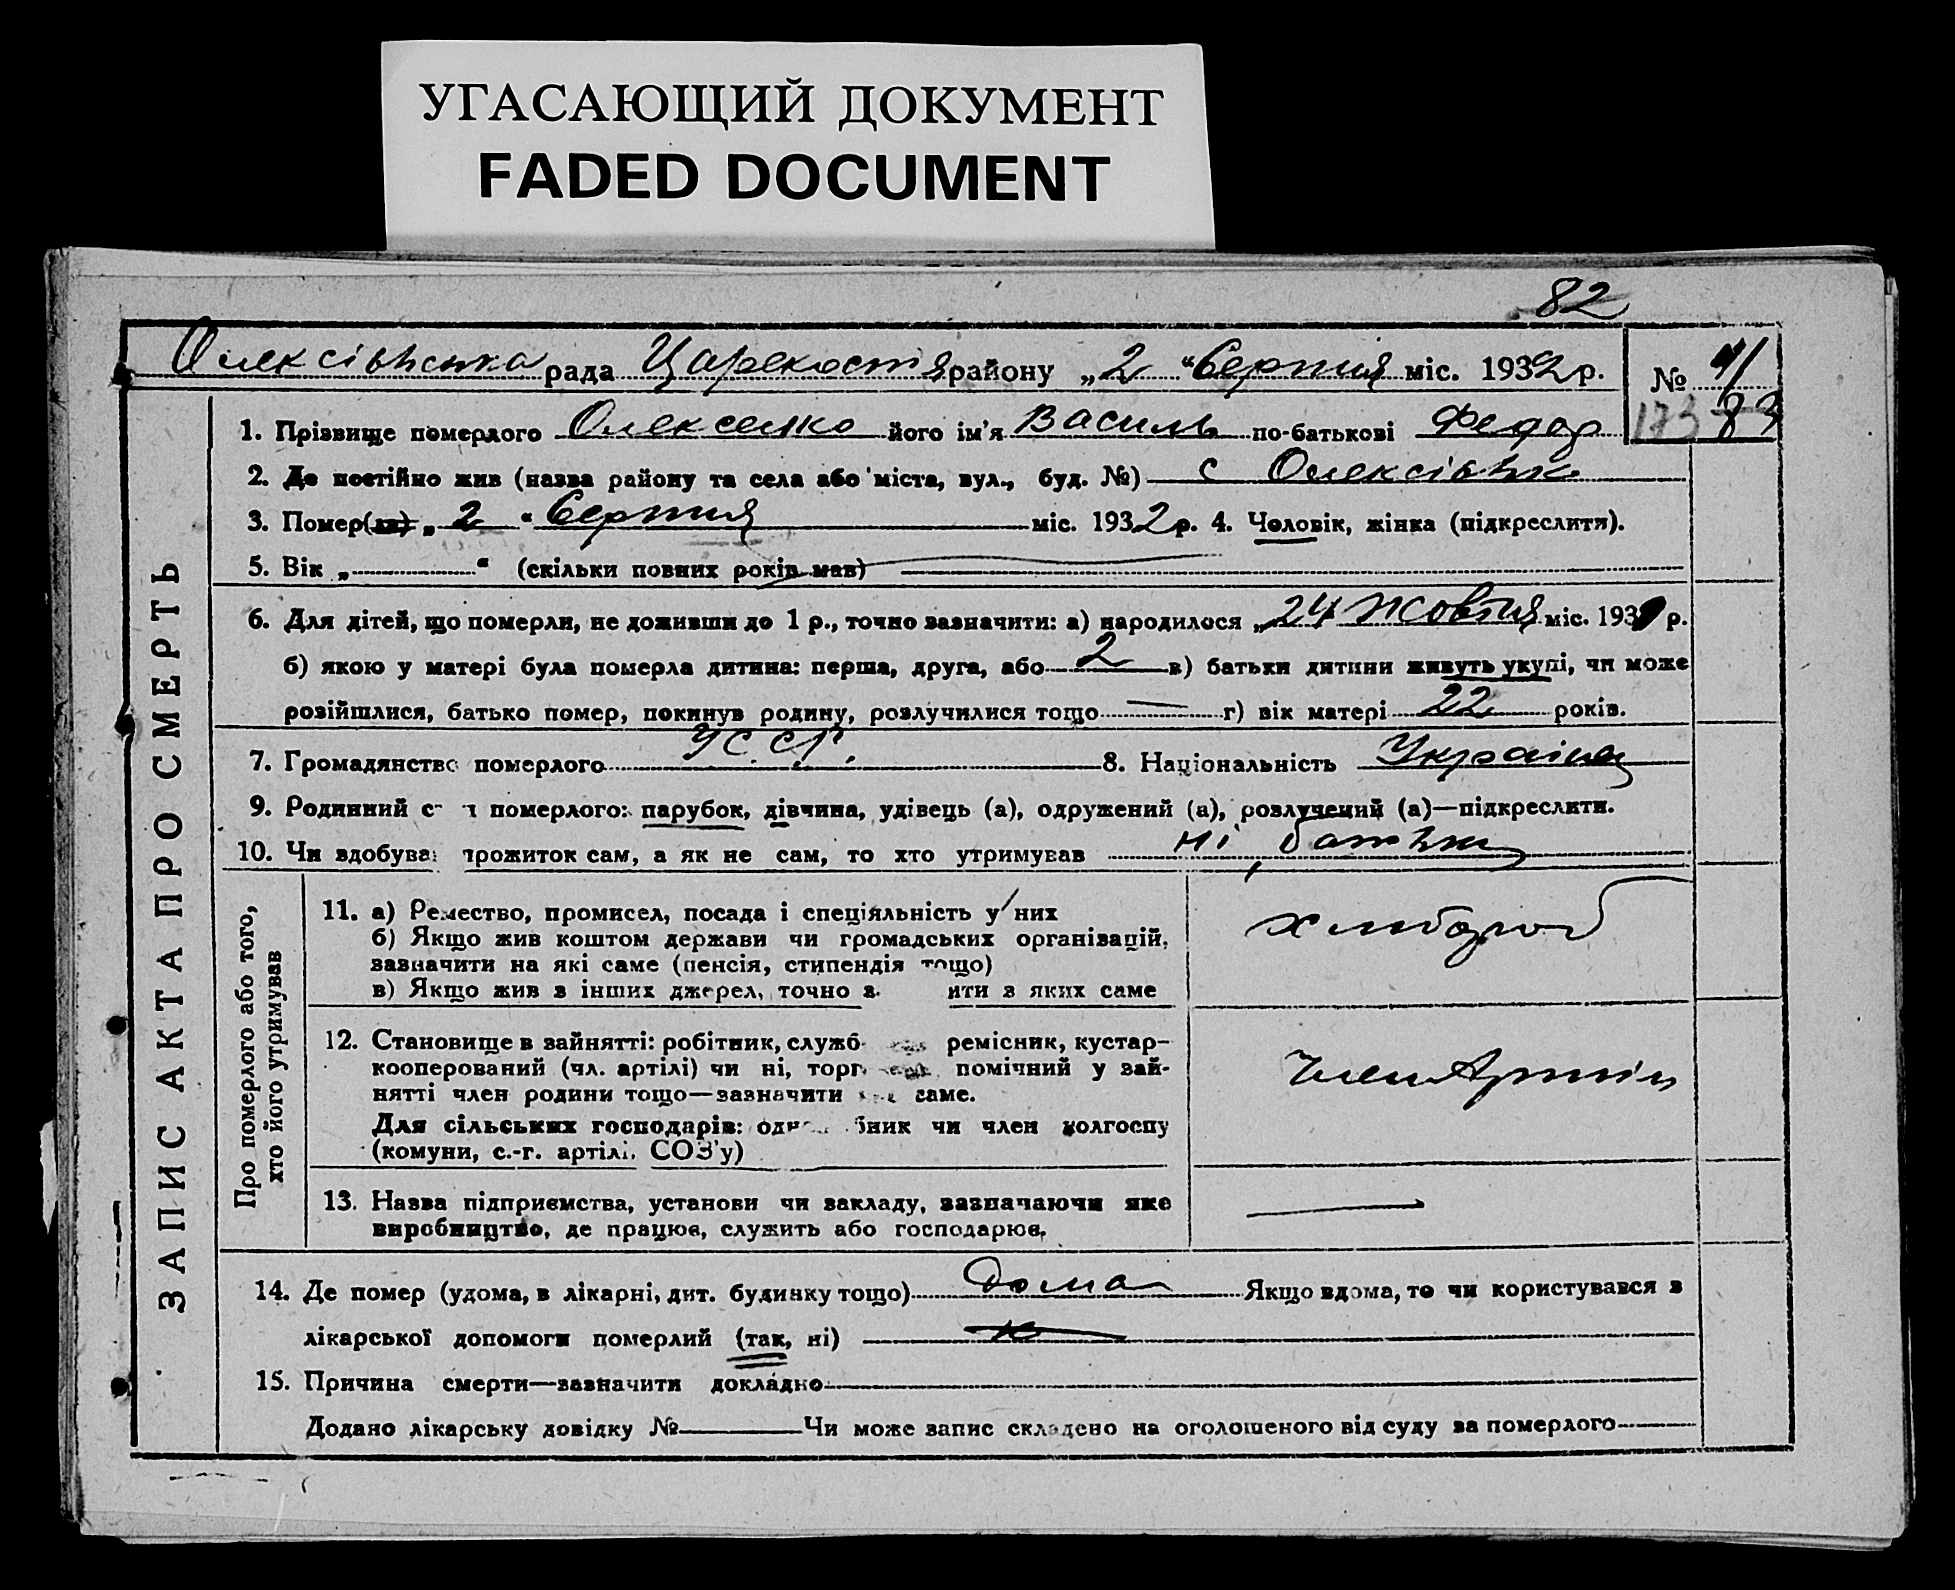 УГАСАЮЩИЙ ДОКУМЕНТ
FADED DOCUMENT
82
Олексівська рада Царекост району „2“ Серпня міс. 1932 р. № 41
173 83
1. Прізвище померлого Олексенко його ім'я Василь по-батькові Федор
2. Де постійно жив (назва району та села або міста, вул., буд. №) с Олексівка
3. Помер(ла) „2“ Серпня міс. 1932 р. 4. Чоловік, жінка (підкреслити).
5. Вік „ “ (скільки повних років мав)
6. Для дітей, що померли, не доживши до 1 р., точно зазначити: а) народилося „24 жовтня міс. 1931 р.
б) якою у матері була померла дитина: перша, друга, або 2 в) батьки дитини живуть укупі, чи може
розійшлися, батько помер, покинув родину, розлучилися тощо — г) вік матері 22 років.
7. Громадянство померлого УССР. 8. Національність Українец
9. Родинний с н померлого: парубок, дівчина, удівець (а), одружений (а), розлучений (а)—підкреслити.
10. Чи здобував прожиток сам, а як не сам, то хто утримував ні, батьки
ЗАПИС АКТА ПРО СМЕРТЬ
Про померлого або того,
хто його утримував
11. а) Ремество, промисел, посада і спеціяльність у них
б) Якщо жив коштом держави чи громадських організацій,
зазначити на які саме (пенсія, стипендія тощо)
в) Якщо жив з інших джерел, точно з ити з яких саме
хлібороб
12. Становище в зайнятті: робітник, служб ремісник, кустар-
кооперований (чл. артілі) чи ні, торг помічний у зай-
нятті член родини тощо—зазначити саме.
Для сільських господарів: одн бник чи член колгоспу
(комуни, с.-г. артілі, СОЗ'у)
член Артіли
13. Назва підприємства, установи чи закладу, зазначаючи яке
виробництво, де працює, служить або господарює.
—
14. Де помер (удома, в лікарні, дит. будинку тощо) дома Якщо вдома, то чи користувався з
лікарської допомоги померлий (так, ні)
15. Причина смерти—зазначити докладно
Додано лікарську довідку № Чи може запис складено на оголошеного від суду за померлого